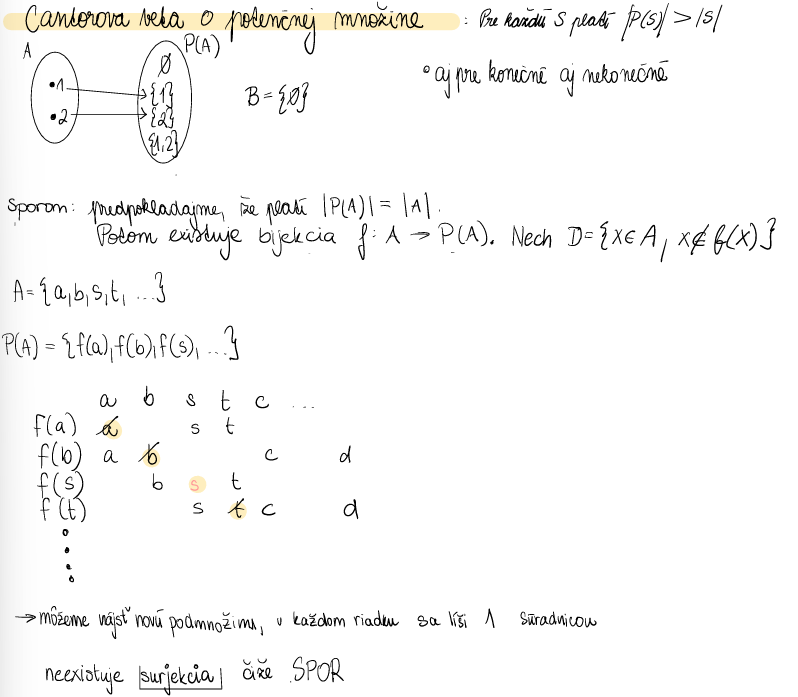 Cantorova veta o potenčnej množine : Pre každú S platí |P(S)| > |S|
A P(A)
• aj pre konečné aj nekonečné
•1 •2
∅
{1}
{2}
{1,2}
B = {∅}
Sporom: predpokladajme, že platí |P(A)| = |A|.
Potom existuje bijekcia f: A → P(A). Nech D = {x∈A, x∉f(x)}
A = {a,b,s,t, ...}
P(A) = {f(a), f(b), f(s), ...}
a b s t c ...
f(a) a s t
f(b) a b c d
f(s) b s t
f(t) s t c d
→ môžeme nájsť novú podmnožinu, v každom riadku sa líši 1 súradnicou
neexistuje surjekcia čiže SPOR